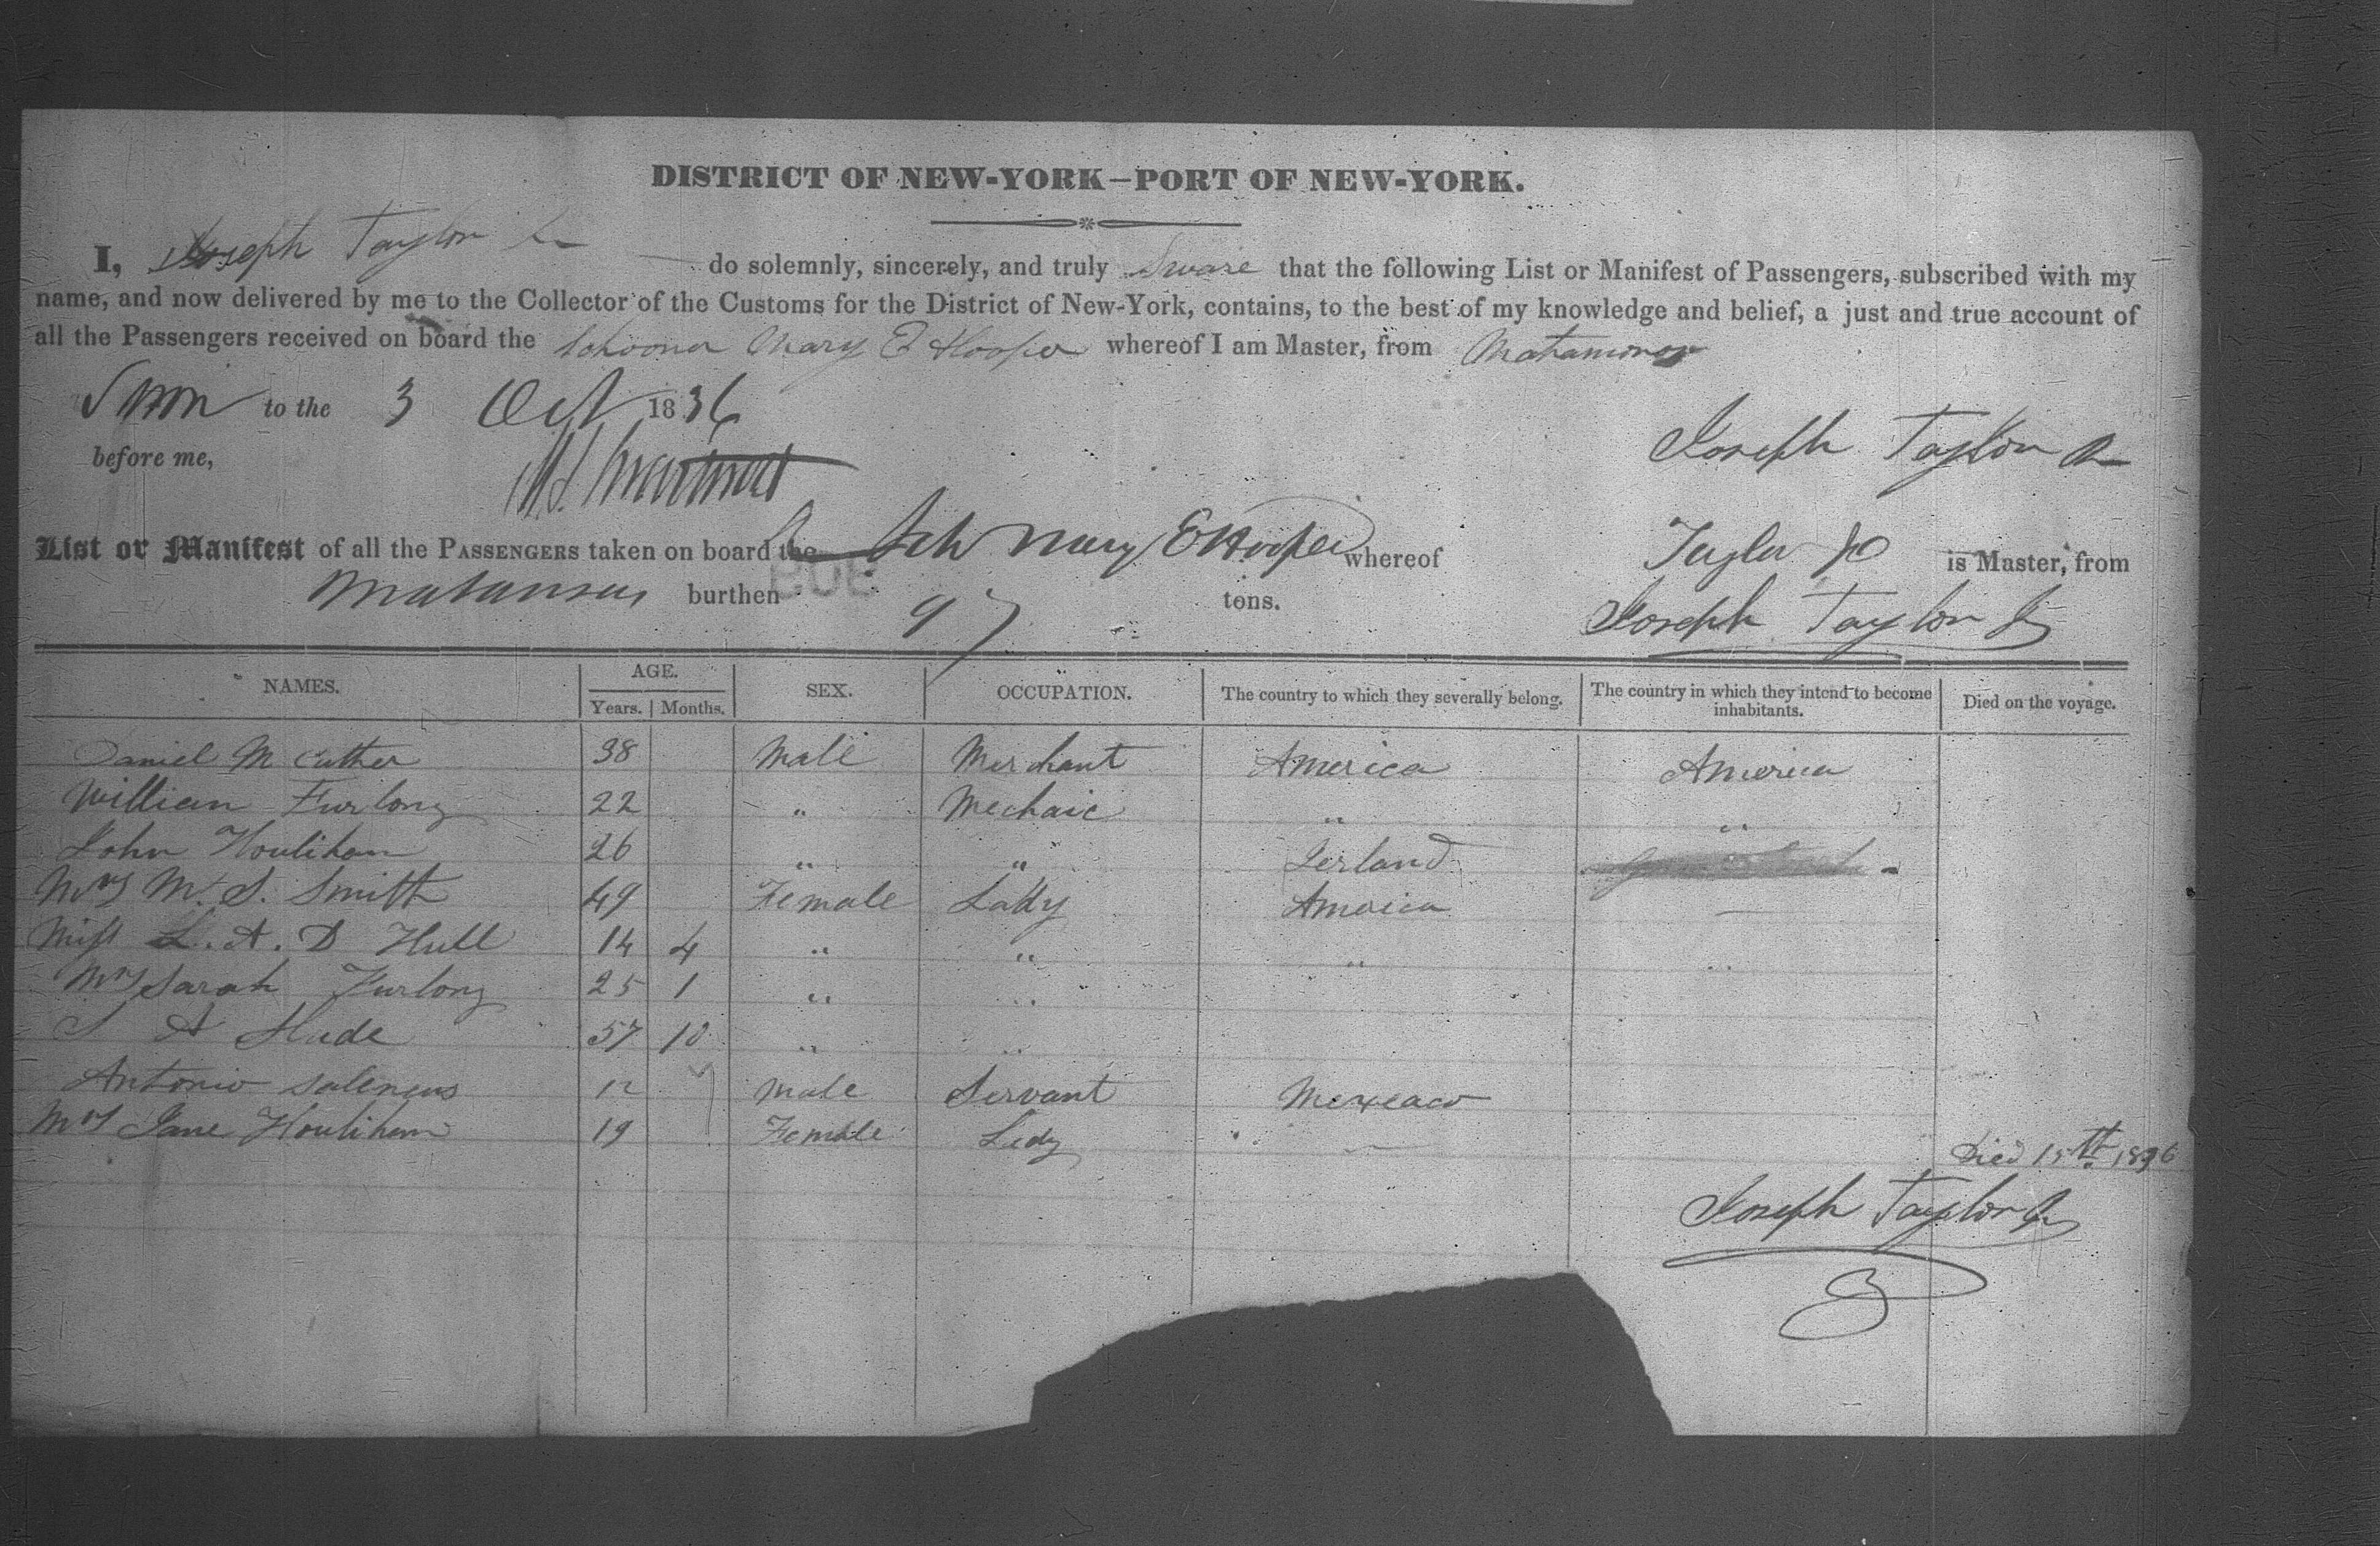 DISTRICT OF NEW-YORK—PORT OF NEW-YORK.
I, Joseph Taylor Jr do solemnly, sincerely, and truly Sware that the following List or Manifest of Passengers, subscribed with my
name, and now delivered by me to the Collector of the Customs for the District of New-York, contains, to the best of my knowledge and belief, a just and true account of
all the Passengers received on board the Schooner Mary E Hooper whereof I am Master, from Matamoros
Sworn to the 3 Oct 1836
before me,
Joseph Taylor Jr
List or Manifest of all the PASSENGERS taken on board the Sch Mary E Hooper whereof Taylor Jr is Master, from
burthen 97 tons.
Joseph Taylor Jr
NAMES. AGE. SEX. OCCUPATION. The country to which they severally belong. The country in which they intend to become inhabitants. Died on the voyage.
Years. Months.
Daniel M Cuther 38 Male Merchant America America
William Furlong 22 " Mechaic " "
John Houlihan 26 " " Ierland
Mrs M. S. Smith 49 Female Lady America —
Miss L. A. D Hull 14 4 " " " "
Mrs Sarah Furlong 25 1 " "
S A Hude 57 10 " "
Antonio 12 Male Servant Mexeaco
Mrs Jane Houlihan 19 Female Ledy " —
Died 15th 1836
Joseph Taylor Jr